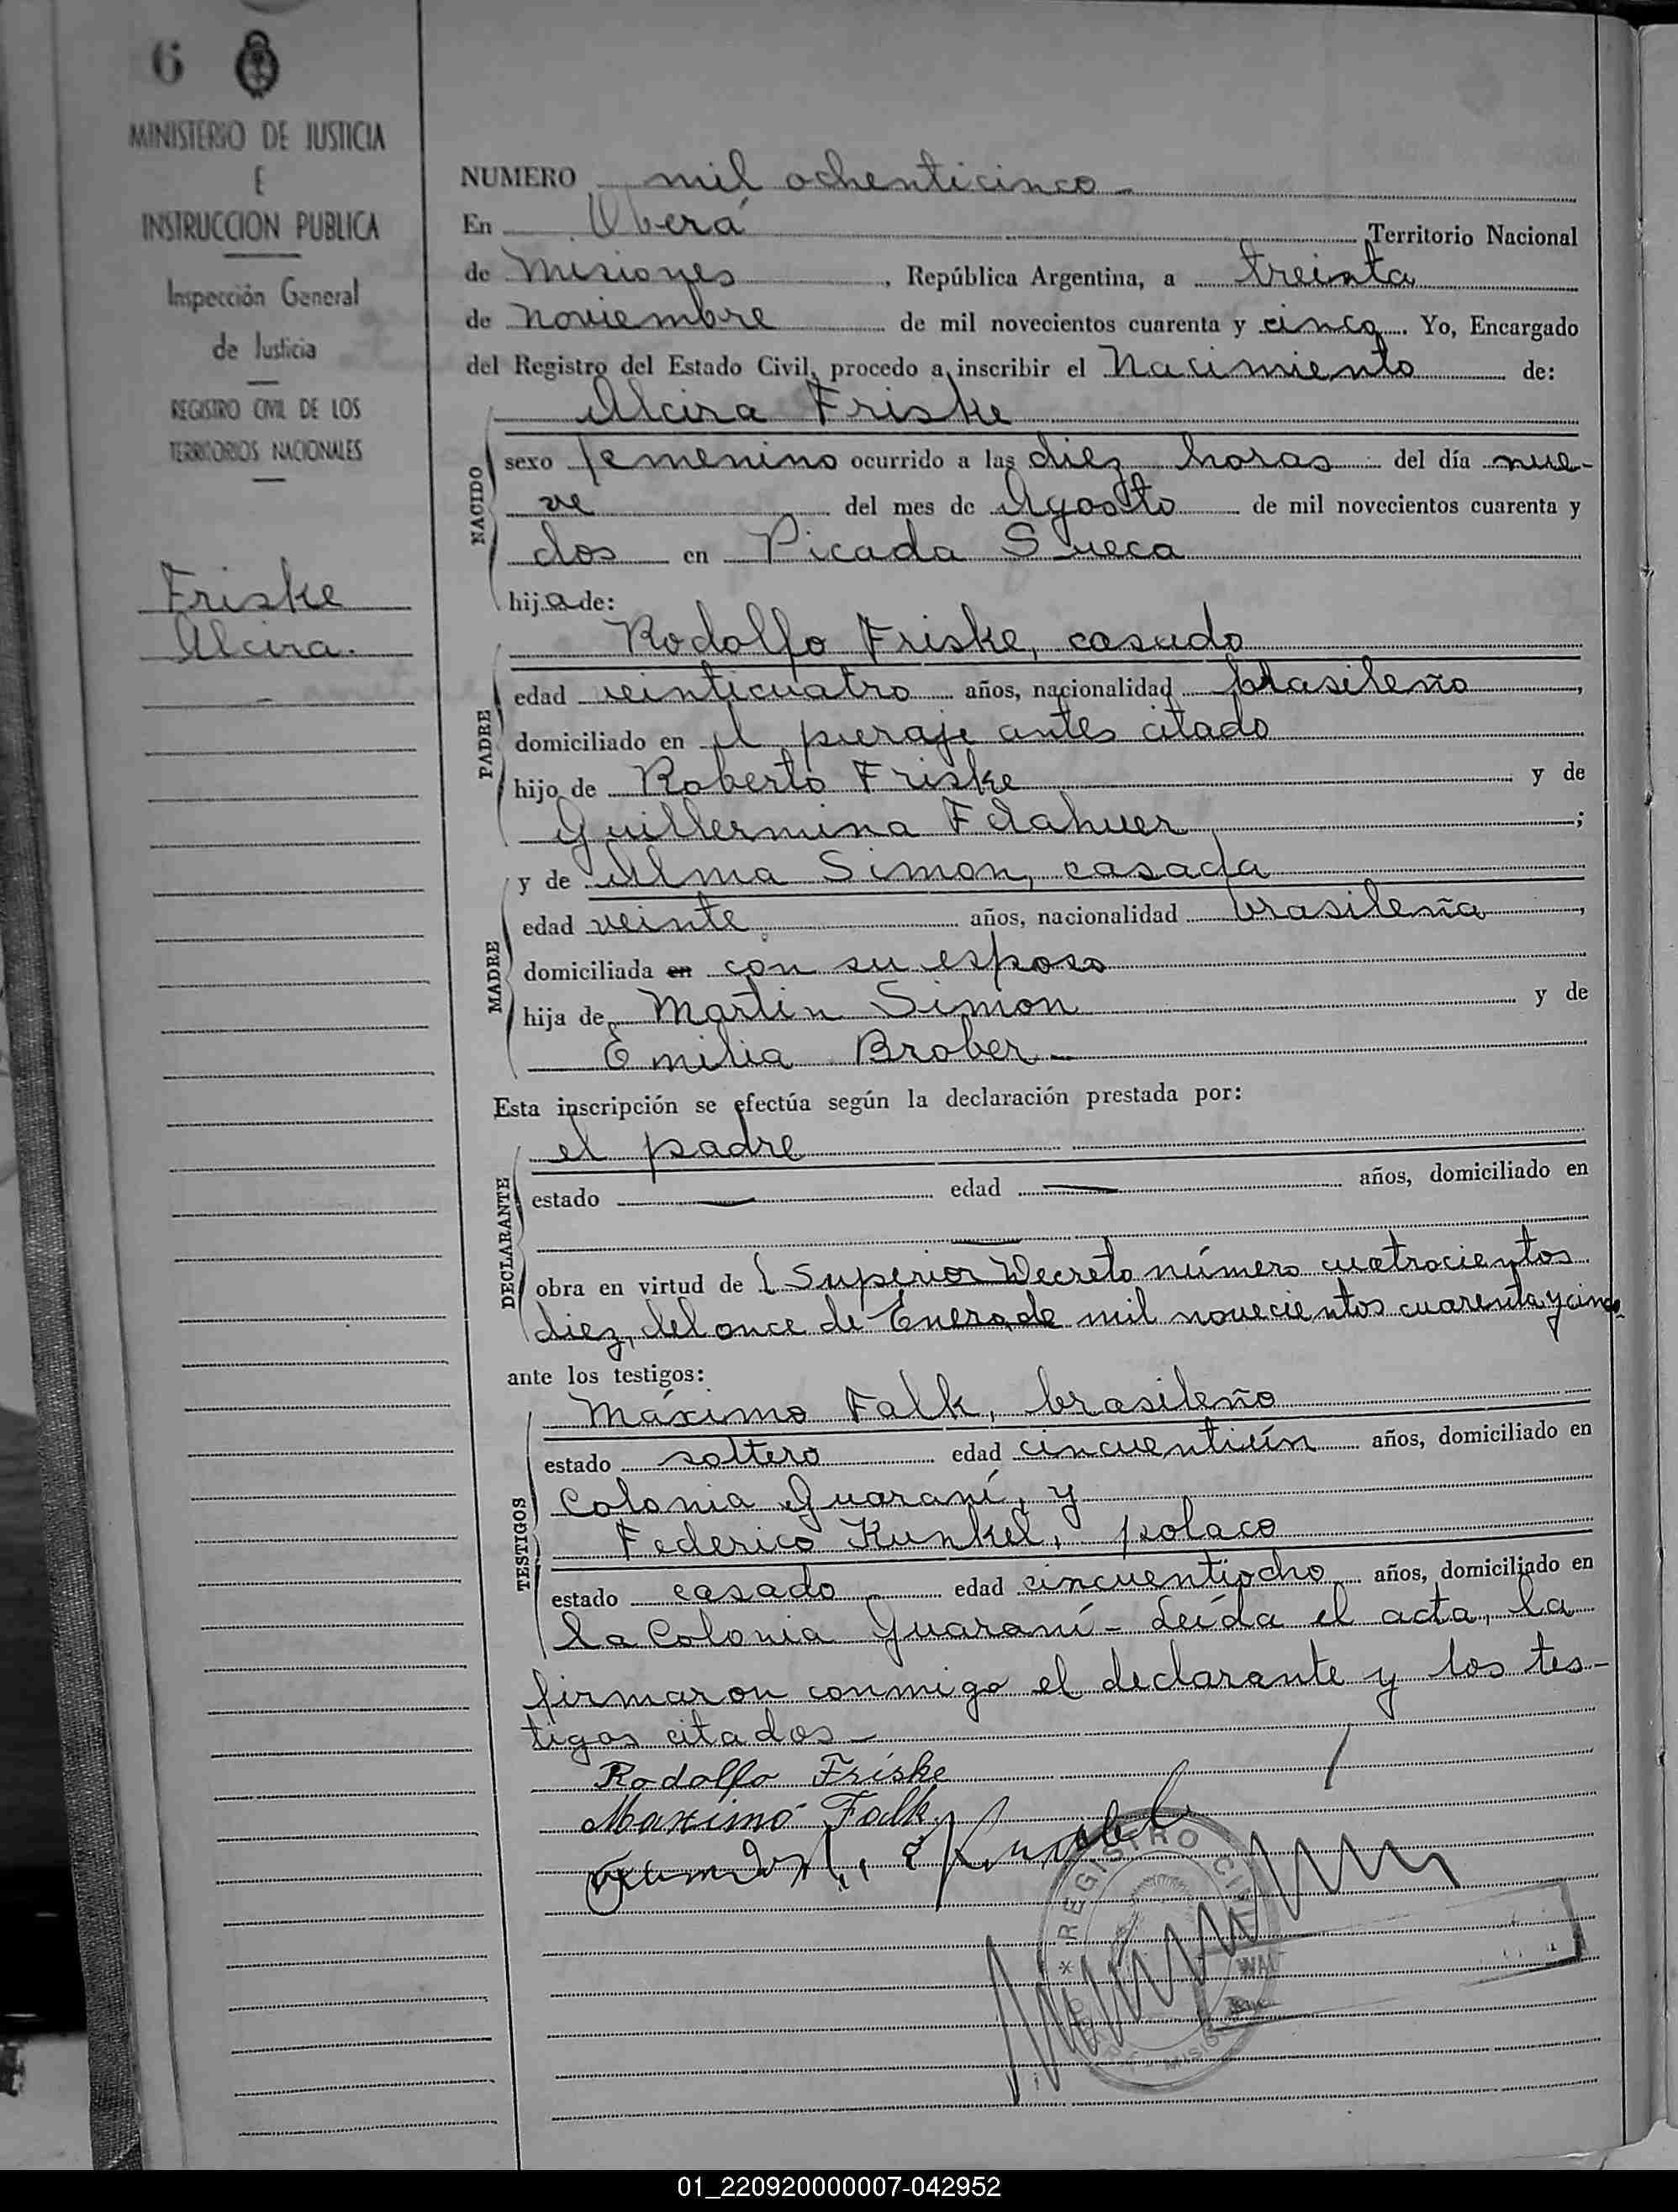 6
MINISTERIO DE JUSTICIA
E
INSTRUCCION PUBLICA
Inspección General
de Justicia
REGISTRO CIVIL DE LOS
TERRITORIOS NACIONALES
Friske
Alcira.
NUMERO mil ochenticinco -
En Oberá Territorio Nacional
de Misiones, República Argentina, a treinta
de noviembre de mil novecientos cuarenta y cinco. Yo, Encargado
del Registro del Estado Civil, procedo a inscribir el Nacimiento de:
Alcira Friske
NACIDO
sexo femenino ocurrido a las diez horas del día nue-
ve del mes de Agosto de mil novecientos cuarenta y
dos en Picada Sueca
hija de:
Rodolfo Friske, casado
PADRE
edad veinticuatro años, nacionalidad brasileño,
domiciliado en el paraje antes citado
hijo de Roberto Friske y de
Guillermina Fdahuer;
y de Alma Simon, casada
MADRE
edad veinte años, nacionalidad brasileña,
domiciliada en con su esposo
hija de Martin Simon y de
Emilia Brober -
Esta inscripción se efectúa según la declaración prestada por:
el padre
DECLARANTE
estado — edad — años, domiciliado en
—
obra en virtud de l Superior Decreto número cuatrocientos
diez, del once de Enero, de mil novecientos cuarenta y cinco
ante los testigos:
Máximo Falk, brasileño
TESTIGOS
estado soltero edad cincuentiún años, domiciliado en
Colonia Guaraní, y
Federico Kunkel, polaco
estado casado edad cincuentiocho años, domiciliado en
la Colonia Guaraní - Leída el acta, la
firmaron conmigo el declarante y los tes-
tigos citados -
Rodolfo Friske
Maximo Falk
REGISTRO CIVIL
01_220920000007-042952